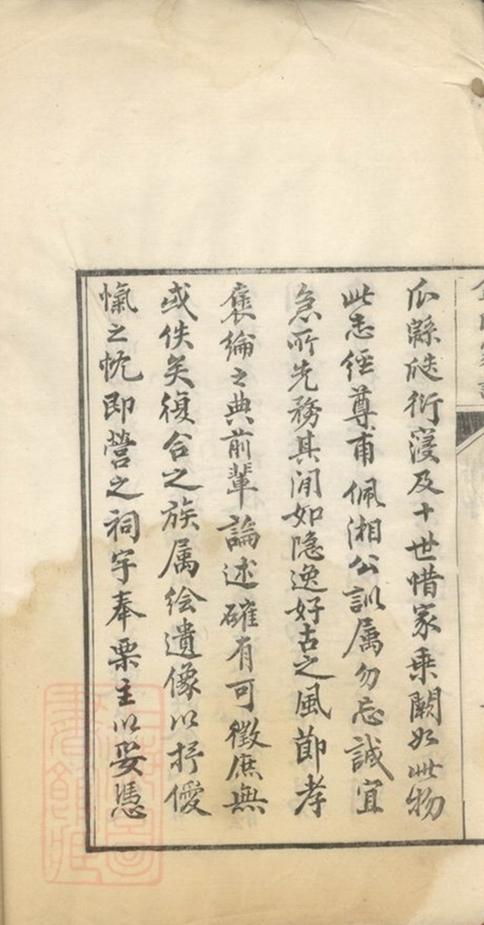 瓜緜瓞衍寖及十世惜家乘闕如此物
此志經尊甫佩湘公訓属勿忘誠宜
急所先務其間如隐逸好古之風節孝
褒綸之典前輩論述確有可徵庶無
或佚矣復合之族属绘遺像以抒僾
愾之忱即營之祠宇奉栗主以妥憑